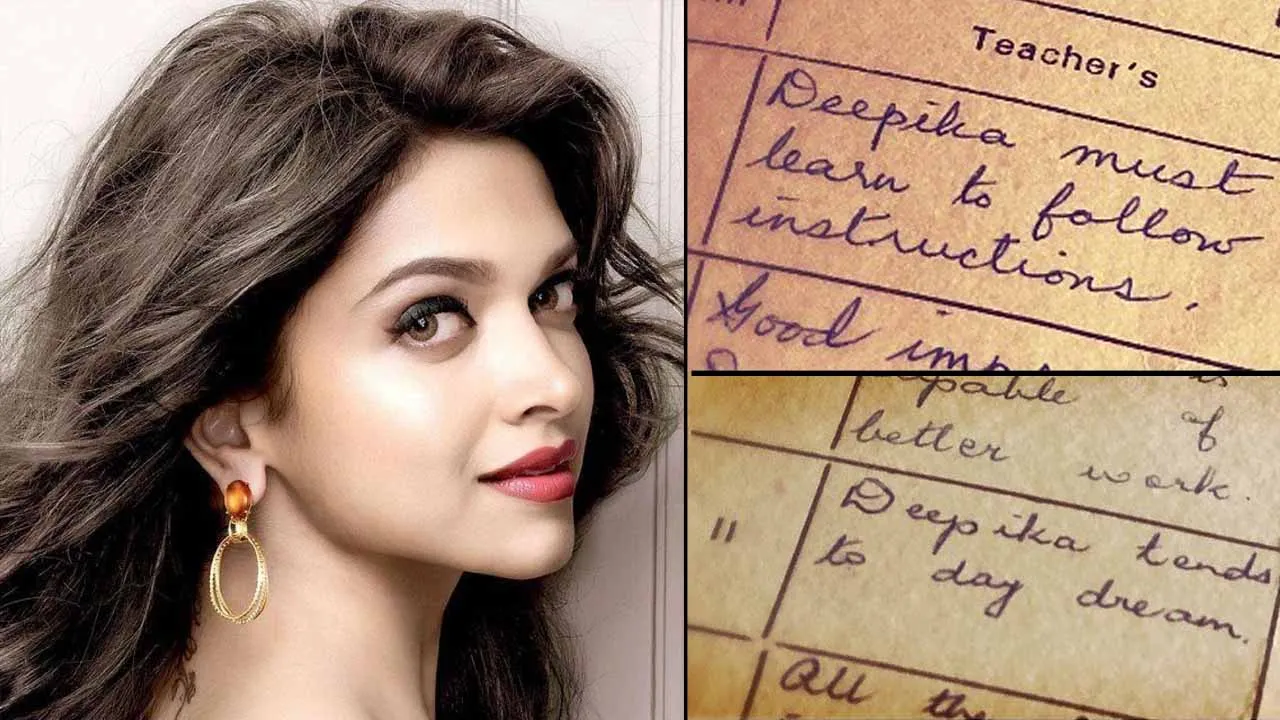 Teacher's
Deepika must
learn to follow
instructions.
Good
of
better work.
"
Deepika tends
to day dream.
All the